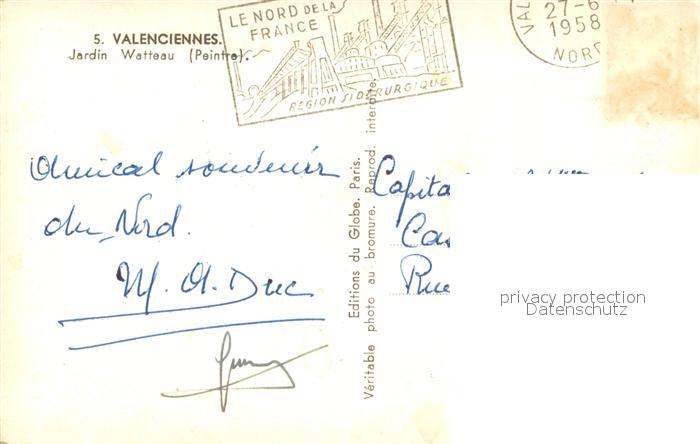 5. VALENCIENNES.
Jardin Watteau (Peintre).
LE NORD DE LA
FRANCE
REGION SIDERURGIQUE
VAL
27-6
1958
NORD
Amical souvenir
du Nord.
M. A. Duc
Editions du Globe. Paris.
Véritable photo au bromure. Reprod. interdite.
Capita
Cas
Rue
privacy protection
Datenschutz